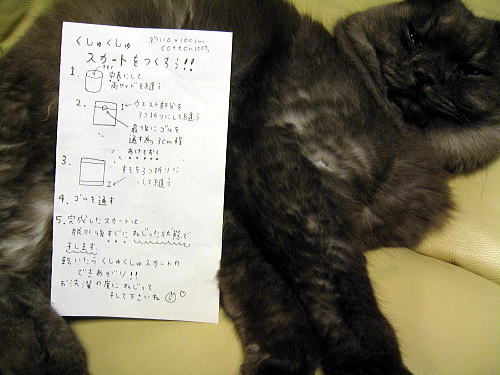 くしゅくしゅ 約110×100cm
cotton100%
スカートをつくろう!!
1. 中表にして
両サイドを縫う
2. 1 ウエスト部分を
3つ折りにして縫う
最後にゴムを
通す為 3cm程
あけておく
3. すそを3つ折りに
2 して縫う
4. ゴムを通す
5. 完成したスカートは
脱水後すぐにねじった状態で
干します。
乾いたらくしゅくしゅスカートの
できあがり!!
お洗濯の度にねじって
干して下さいね